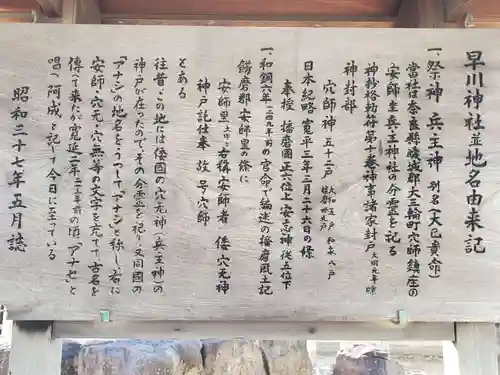 早川神社並地名由来記
一、祭神 兵主神 別名(大己貴命)
当社は奈良縣磯城郡大三輪町穴師鎮座の
安師坐兵主神社の分霊を祀る
神新格勅符第十巻神事諸家封戸大同元年牒
神封部
穴師神 五十二戸 大和五戸 和泉八戸 播磨卅九戸
日本紀略寛平三年三月二十六日の條
奉授 播磨國正六位上安志神従五位下
一、和銅六年(一二四九年前)の官命で編述の播磨風土記
餝磨郡安師里の條に
安師里土中ノ中 右称安師者 倭穴无神
神戸託仕奉 故号穴師
とある
往昔、この地には倭國の穴无神(兵主神)の
神戸が在ったので、その分霊を祀り、又同國の
「アナシ」の地名をうつして「アナシ」と称し、右に
安師・穴无・穴無等の文字を充てて、古名を
傳へて来たが寛延二年二一三年前の頃「アナセ」と
唱へ「阿成」と記して今日に至っている
昭和三十七年五月誌